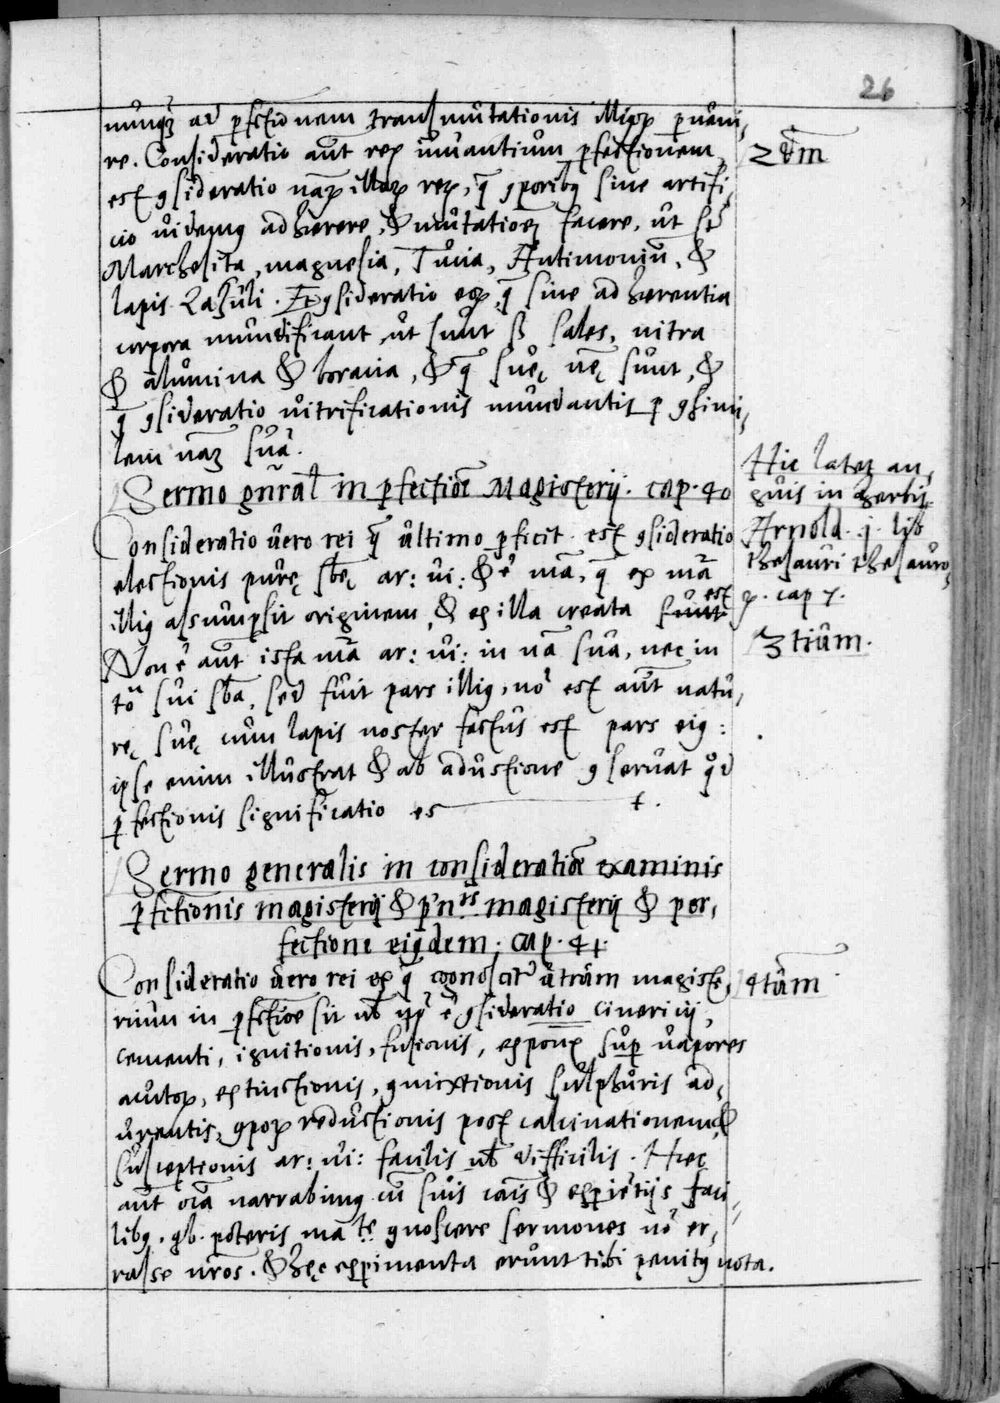 26
nunqꝫ ad ꝑfectionem transmutationis illiꝰ ꝑueni,
re. Consideratio aūt reꝝ iuuantium ꝑfectionem,
2dm̄
est ꝯsideratio naꝝ illaꝝ reꝝ, q̄ ꝯporibꝰ sine artifi,
cio uidemꝰ adhærere, & mutationē facere, ut st̄
Marchesita, magnesia, Tucia, Antimoniū, &
lapis Lazuli. Et ꝯsideratio eoꝝ q̄ sine adhærentia
corpora mundificant, ut sunt sales, nitra
& alumina & boracia, & q̄ suę nē sunt, &
q̄ ꝯsideratio uitrificationis mundantis ꝑ ꝯsimi,
lem naꝫ suā.
Sermo gn̄ral in ꝑfectiōe Magisterij. cap. 40
Hic latet an,
guis in herbis
Arnold. j. lib
thesauri thesauro,
ꝝ. cap 7.
Consideratio uero rei q̄ ultimo ꝑficit est ꝯsideratio
electionis purę sb̄ę ar: ui: & ē mā, q̄ ex mā
illiꝰ assumpsit originem, & ex illa creata est sunt
Non ē aūt ista mā ar: ui: in nā sua, nec in
3tiam.
tō sui sb̄a, sed fuit pars illiꝰ, nō est aūt natu,
rę suę cum lapis noster factus est pars eiꝰ:
ipse enim illustrat & ab adustione ꝯseruat qd̄
ꝑfectionis significatio est.
Sermo generalis in consideratiōe examinis
ꝑfectionis magisterij & p̄nts magisterij & per,
fectione eiꝰdem. cap. 41.
Consideratio uero rei ex q̄ cognoscit̄ utrum magiste,
4tam
rium in ꝑfectiōe sit ul̄ ē ꝯsideratio cineritij,
cementi, ignitionis, fusionis, expon̄ sup̄ uapores
acutoꝝ, extinctionis, ꝯmixtionis sulphuris ad,
urentis, ꝯpoꝝ reductionis post calcinationem &
susceptionis ar: ui: facilis ul̄ difficilis. Hæc
aūt oīa narrabimꝰ cū suis caīs & exꝑiētijs faci,
libꝰ, qb. poteris ma te ꝯnoscere sermones nō er,
rasse nr̄os. & hęc exꝑimenta erunt tibi penitꝰ nota.